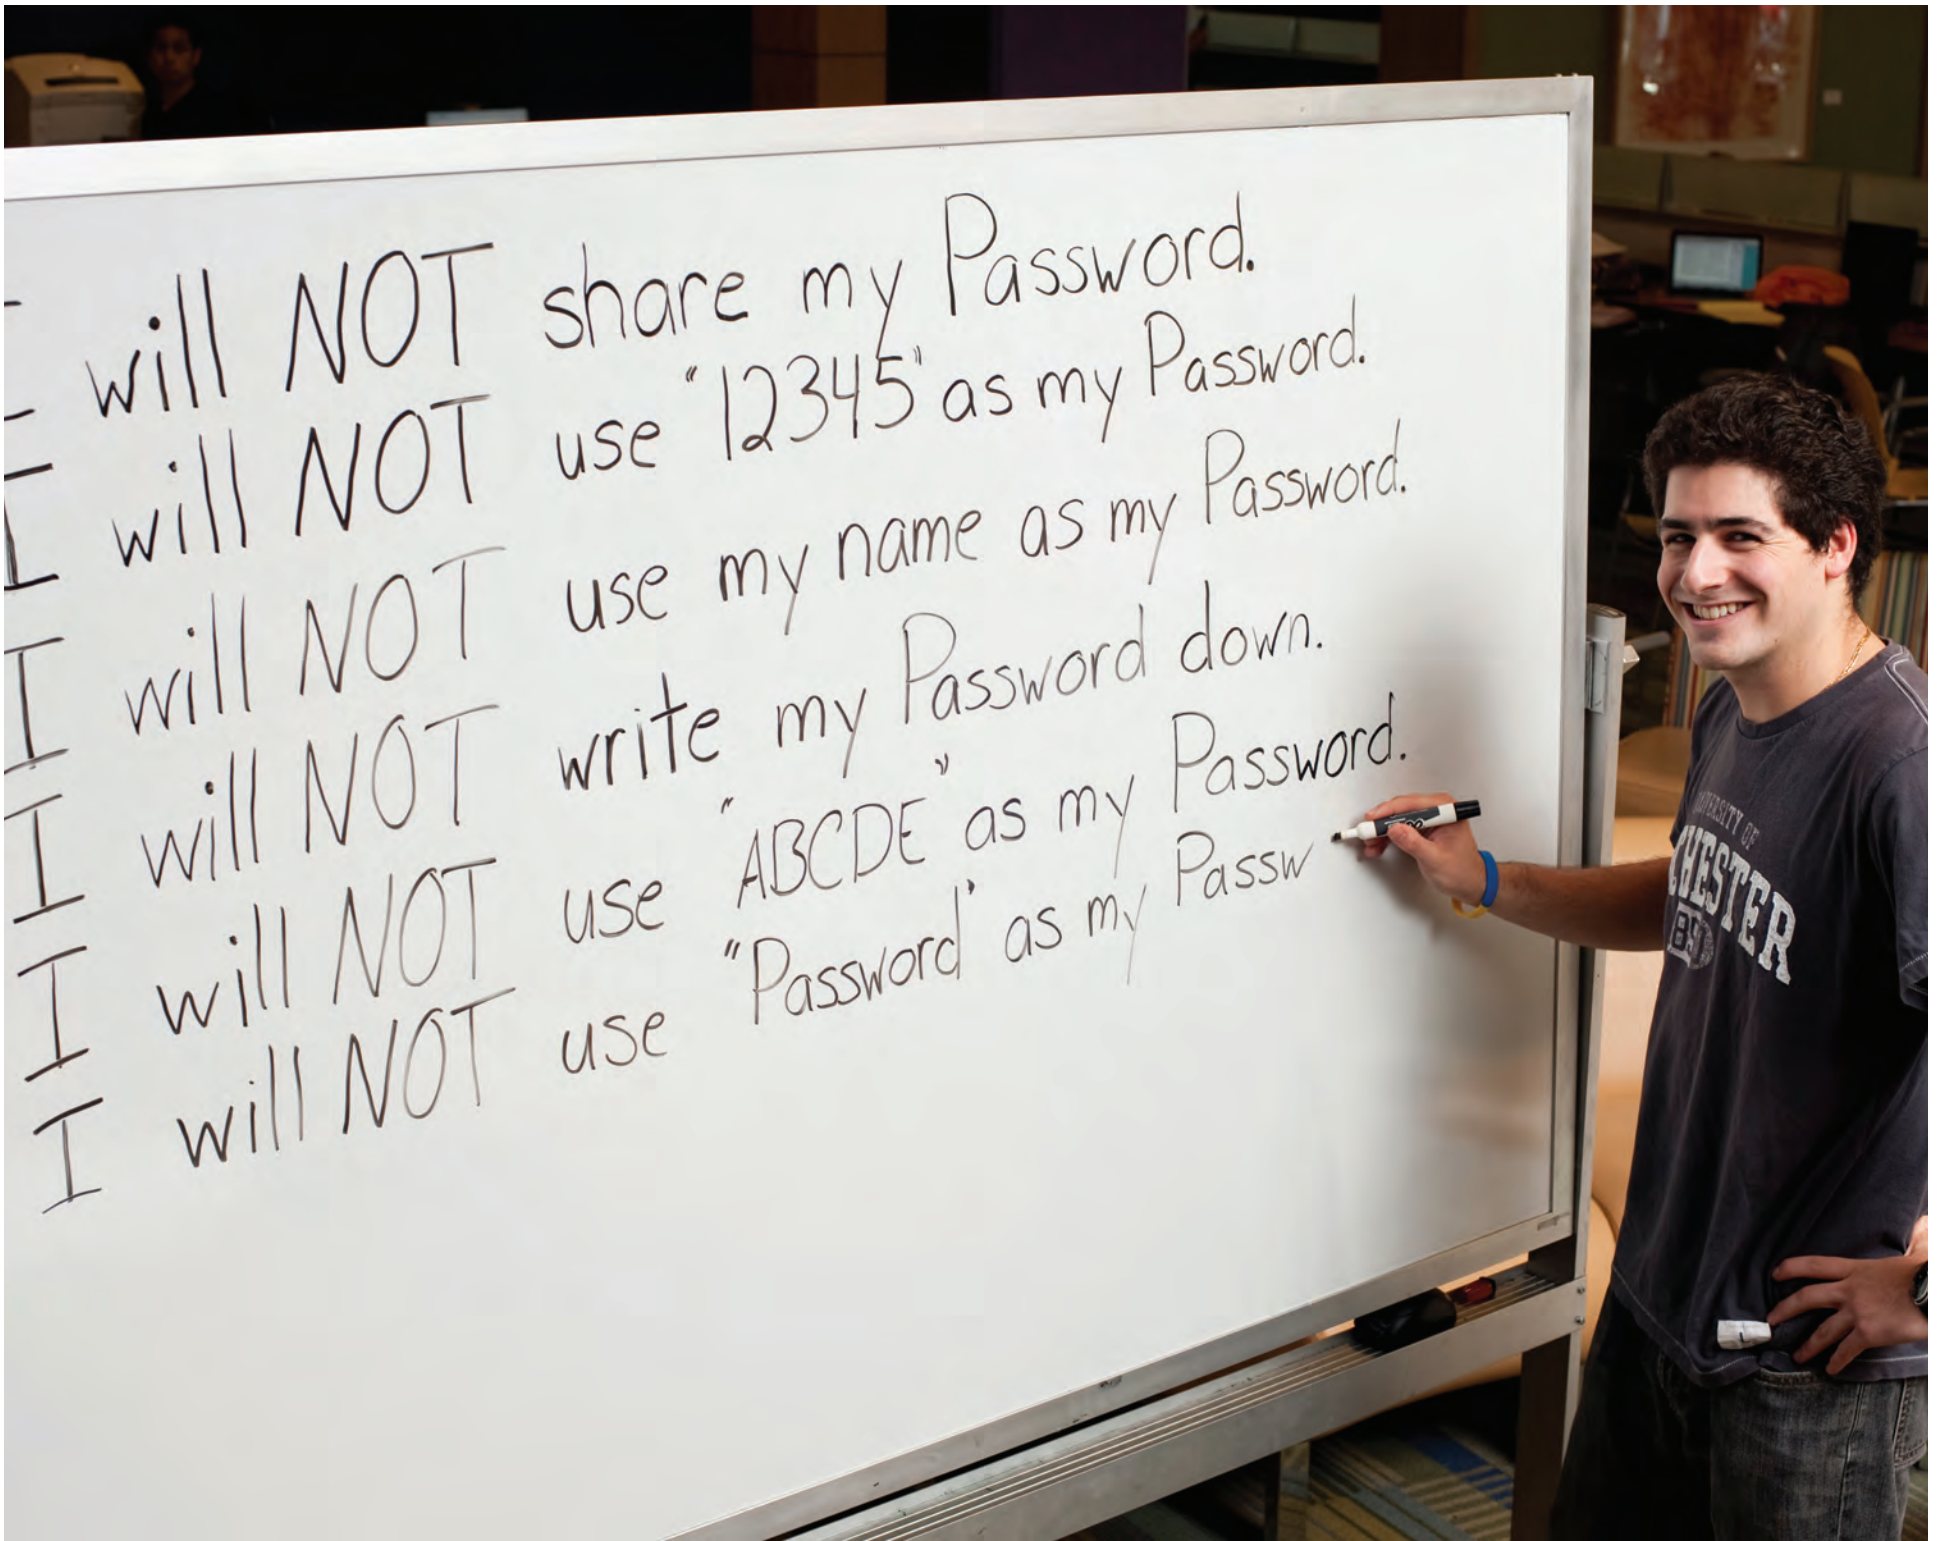 I will NOT share my Password.
I will NOT use "12345" as my Password.
I will NOT use my name as my Password.
I will NOT write my Password down.
I will NOT use "ABCDE" as my Password.
I will NOT use "Password" as my Passw
UNIVERSITY OF
CHESTER